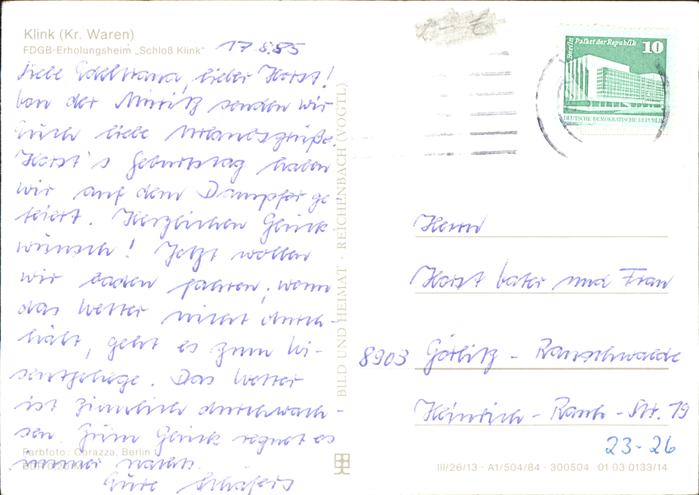 Klink (Kr. Waren)
FDGB-Erholungsheim „Schloß Klink"
17.6.85
Liebe Edeltraud, lieber Horst!
Von der Müritz senden wir
Euch liebe Urlaubsgrüße.
Horst's Geburtstag haben
wir auf dem Dampfer ge
feiert. Herzlichen Glück
wunsch! Jetzt wollen
wir baden fahren, wenn
das Wetter nicht durch-
hält, geht es zum Wi-
sentgehege. Das Wetter
ist ziemlich durchwach-
sen. Zum Glück regnet es
immer nachts.
Eure Schäfers
Farbfoto: Corazza, Berlin
BILD UND HEIMAT · REICHENBACH (VOGTL)
Berlin Palast der Republik 10
DEUTSCHE DEMOKRATISCHE REPUBLIK
Herrn
Horst und Frau
8903 Görlitz - Rauschwalde
Heinrich-Rau-Str. 19
23-26
III/26/13 · A1/504/84 · 300504 01 03 0133/14